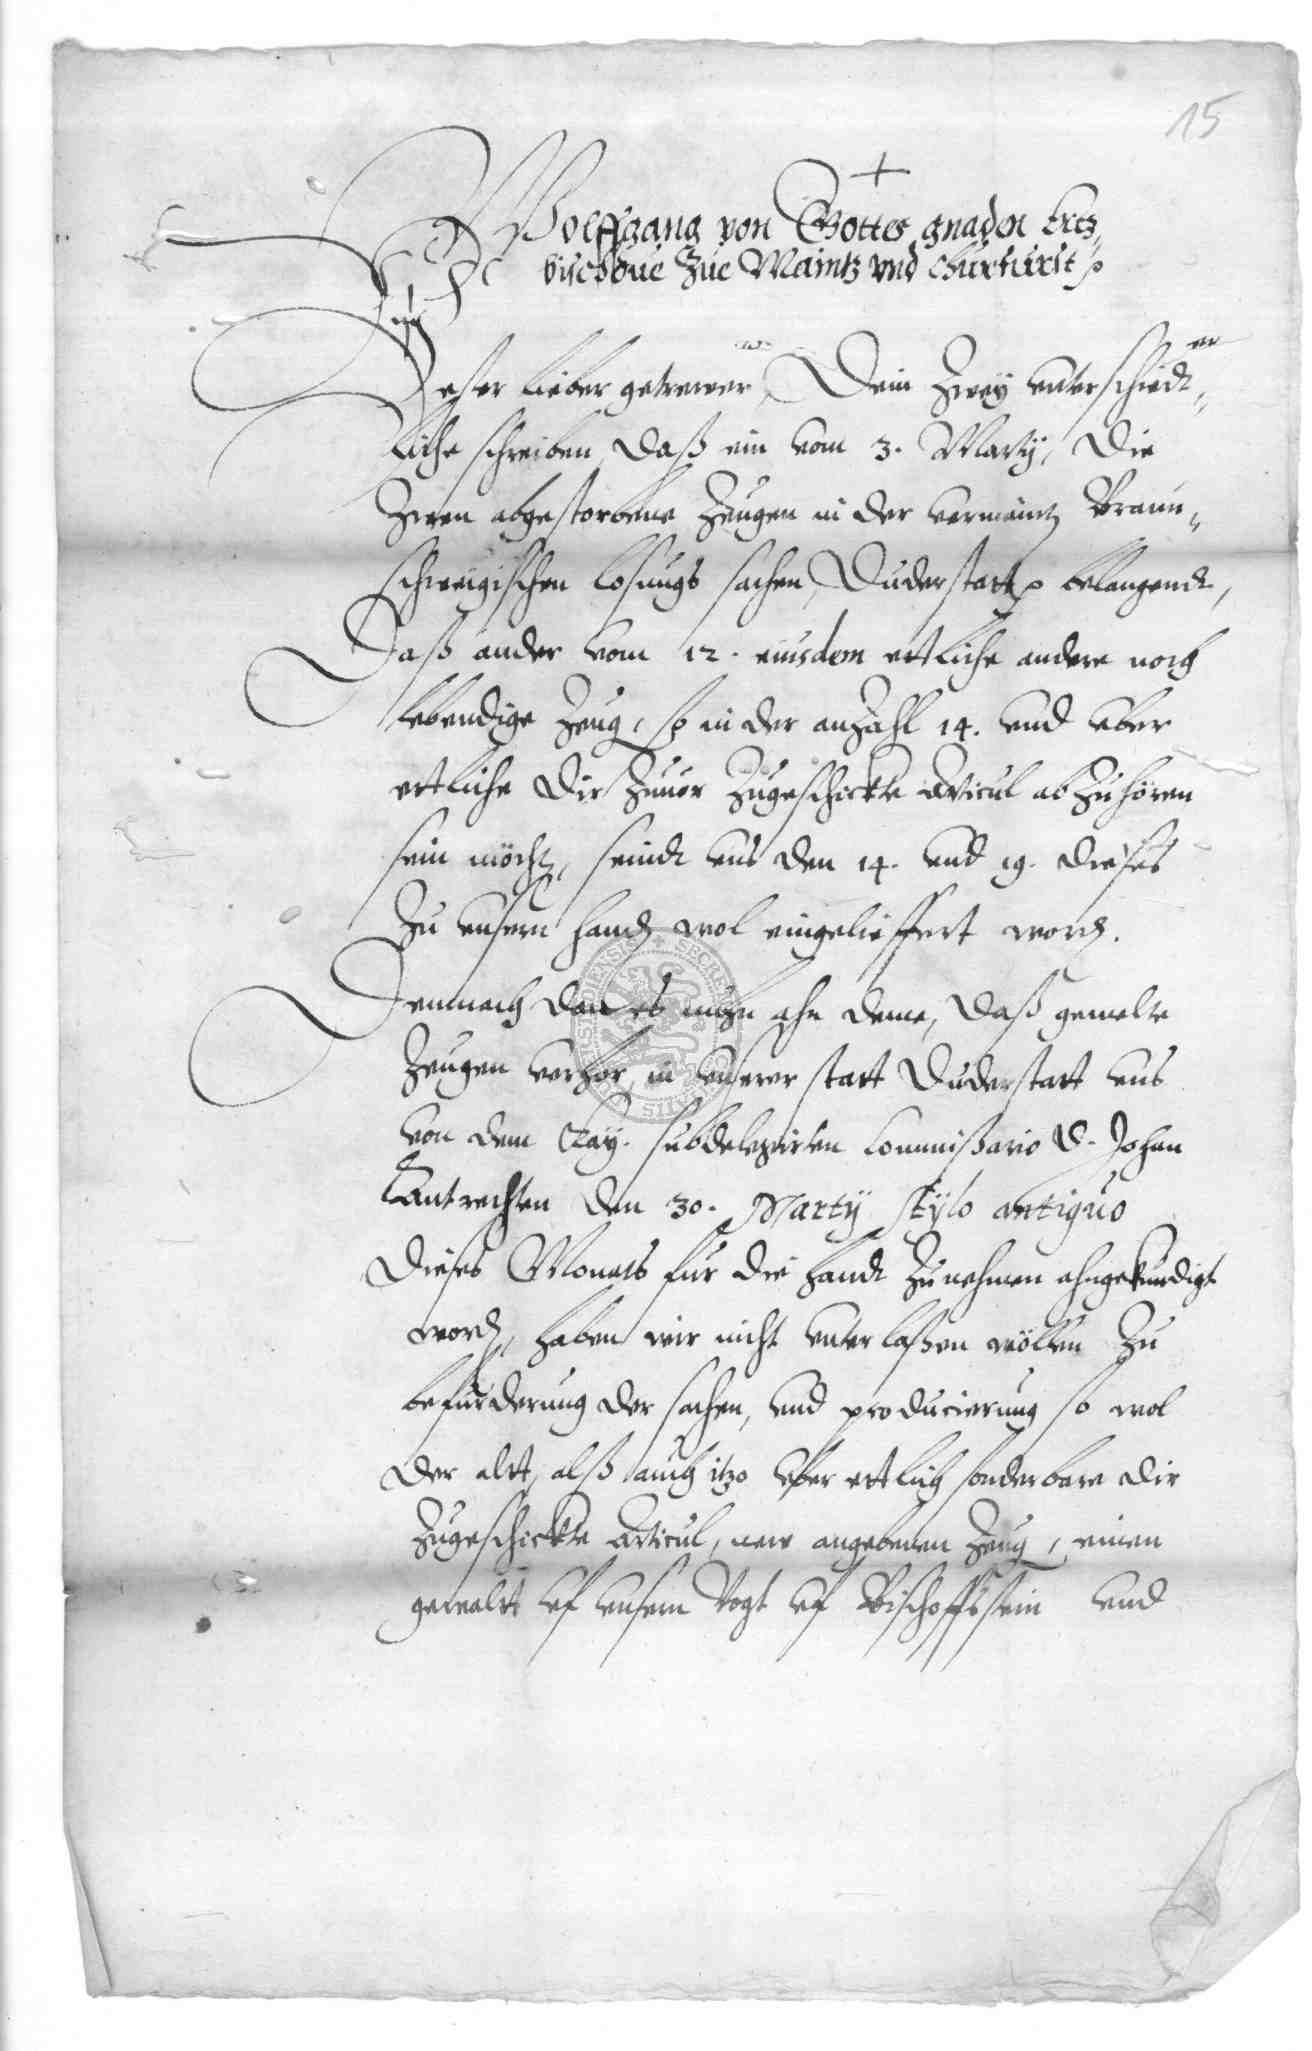 15
Wolffgang von Gottes gnaden Ertz„
bischoue zue Maintz vnd Churfurst p
Vester lieber getrewer, Dein zwey unterschiedt„
liche schreiben, daß ein vom 3. Marty, die
zwen abgestorbene zeugen in der vermeintẽ Braun„
schweigischen losungs sachen, Duderstatt p belangendt,
Daß ander vom 12. eiusdem ettliche andere noch
lebendige zeug, so in der anzahl 14. vnd vber
ettliche dir zuuor zugeschickte Articul abzuhören
sein möchtẽ, seindt vns den 14. vnd 19. dieses
zu vnsern handẽ wol eingelieffert wordẽ.
Demnach dan es nuhn ahn deme, daß gemelte
zeugen verhör, in vnserer statt Duderstatt vns
von dem Kay. subdelegirten Commissario D. Johan
Antrechten den 30. Marty stylo antiquo
dieses Monats fur die handt zunehmen ahngekundigt
wordẽ, haben wir nicht vnterlaßen wöllen zu
befurderung der sachen, vnd producierung so wol
der altẽ, alß auch itzo vber ettlich sonderbare dir
zugeschickte Articul, new angebenen zeug, einen
gewaltt vf vnsern Vogt vf Bischoffstein vnd